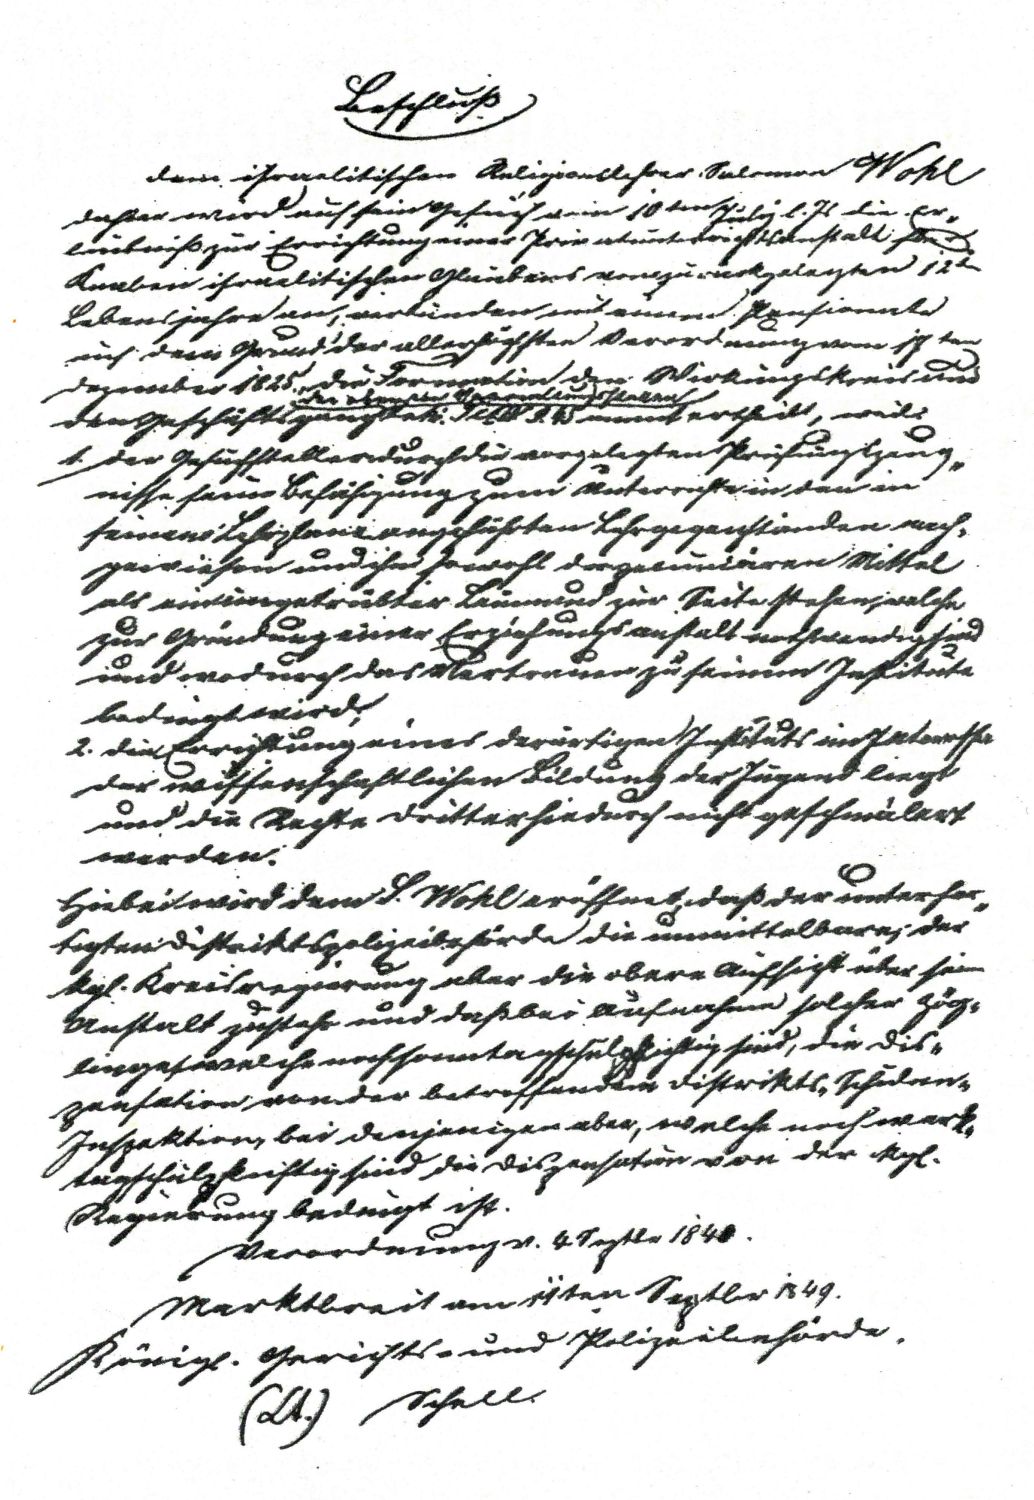 Beschluß
dem israelitischen Religionslehrer Salomon Wohl
dahier wird auf sein Gesuch vom 10ten July l. Js die Er-
laubniß zur Errichtung einer Privatunterrichtsanstalt für
Knaben israelitischen Glaubens vom zurückgelegten 12t
Lebensjahre an, verbunden mit einem Pensionate
auf dem Grund der allerhöchsten Verordnung vom 17ten
Dezember 1825 die Formation den Wirkungskreis und
der obersten Verwaltungsstellen
den Geschäftsgang betr. ertheilt, weil:
1. der Gesuchsteller durch die vorgelegten Prüfungszeug-
nisse seine Befähigung zum Unterrichte in den in
seinem Lehrplane angeführten Lehrgegenständen nach-
gewiesen und ihm sowohl die pecuniären Mittel
als ein ungetrübter Leumund zur Seite stehen, welche
zur Gründung einer Erziehungsanstalt nothwendig sind
und wodurch das Vertrauen zu seinem Institute
bedingt wird,
2. die Errichtung eines derartigen Instituts im Interesse
der wissenschaftlichen Bildung der Jugend liegt
und die Rechte dritter hiedurch nicht geschmälert
werden.
Hiebei wird dem S. Wohl eröffnet, daß der unterfer-
tigten Distriktspolizeibehörde die unmittelbare, der
kgl. Kreisregierung aber die obere Aufsicht über seine
Anstalt zustehe und daß bei Aufnahme solcher Zög-
linge, welche noch sonntagsschulpflichtig sind, die Dis-
pensation von der betreffenden Distrikts-Schulen-
Inspektion, bei denjenigen aber, welche noch werk-
tagsschulpflichtig sind die Dispensation von der kgl.
Regierung bedingt ist.
Verordnung v. 4 Septbr 1840.
Marktbreit am 11ten Septbr 1849.
Königl. Gerichts- und Polizeibehörde.
Schell.